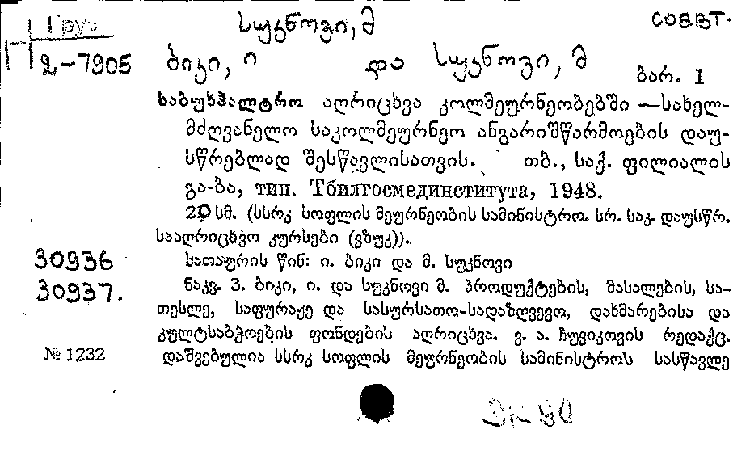 Груз
სუკნოვი, მ
СОВВТ.
П
2-7905
ბიკი, ი და სუკნოვი, მ
ბარ. 1
საბუხჰალტრო აღრიცხვა კოლმეურნეობებში — სახელ-
მძღვანელო საკოლმეურნეო ანგარიშწარმოების დაუ-
სწრებლად შესწავლისათვის. თბ., საქ. ფილიალის
გა-ბა, тип. Тбилгосмединститута, 1948.
20 სმ. (სსრკ სოფლის მეურნეობის სამინისტრო. სრ. საკ. დაუსწრ.
სააღრიცხვო კურსები (ვზუკ)).
30936
სათაურის წინ: ი. ბიკი და მ. სუკნოვი
30937.
ნაკვ. 3. ბიკი, ი. და სუკნოვი მ. პროდუქტების, მასალების, სა-
თესლე, საფურაჟე და სასურსათო-სადაზღვევო, დახმარებისა და
კულტსაბჭოების ფონდების აღრიცხვა. ვ. ა. ჩუვიკოვის რედაქც.
№ 1232
დაშვებულია სსრკ სოფლის მეურნეობის სამინისტროს სასწავლე